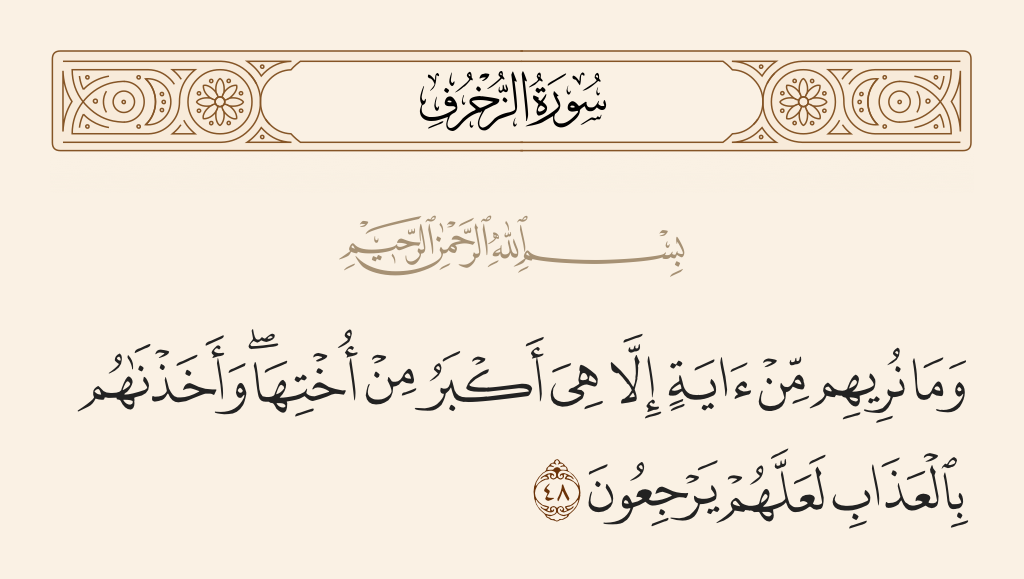 سُورَةُ الزُّخْرُفِ
بِسْمِ ٱللَّهِ ٱلرَّحْمَٰنِ ٱلرَّحِيمِ
وَمَا نُرِيهِم مِّنْ ءَايَةٍ إِلَّا هِىَ أَكْبَرُ مِنْ أُخْتِهَا ۖ وَأَخَذْنَٰهُم
بِٱلْعَذَابِ لَعَلَّهُمْ يَرْجِعُونَ ٤٨